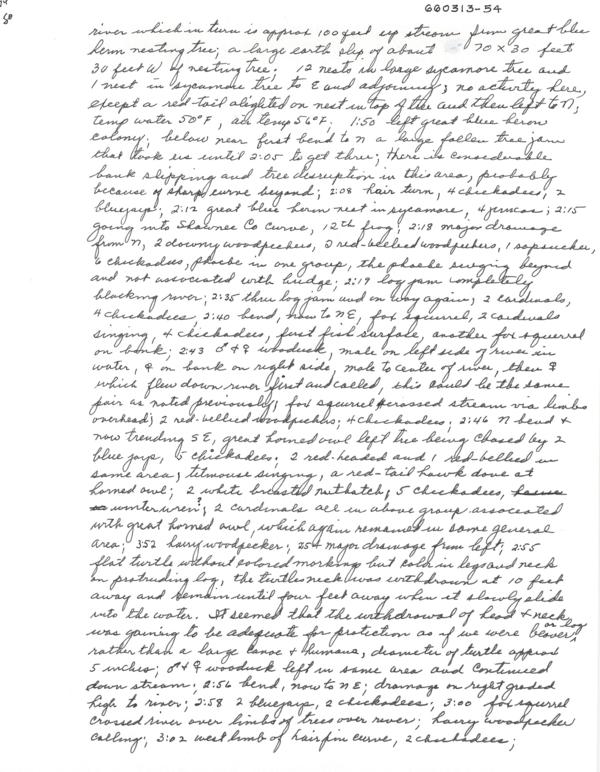 660313-54
river which in turn is approx 100 feet up stream from great blue
heron nesting tree; a large earth slip of about 70 x 30 feet
30 feet W of nesting tree; 12 nests in large sycamore tree and
1 nest in sycamore tree to E and adjoining; no activity here,
except a red-tail alighted on nest in top of tree and then left to N;
temp water 50°F, air temp 56°F; 1:50 left great blue heron
colony; below near first bend to N a large fallen tree jam
that took us until 2:05 to get thru; there is considerable
bank slipping and tree disruption in this area, probably
because of sharp curve beyond; 2:08 hair turn, 4 chickadees, 2
bluejays; 2:12 great blue heron nest in sycamore, 4 juncos; 2:15
going into Shawnee Co curve, 12th frog; 2:18 major drainage
from N, 2 downy woodpeckers, 2 red-bellied woodpeckers, 1 sapsucker,
6 chickadees, phoebe in one group, the phoebe singing beyond
and not associated with bridge; 2:19 log jam completely
blocking river; 2:35 thru log jam and on way again; 2 cardinals,
4 chickadees 2:40 bend, now to NE, fox squirrel, 2 cardinals
singing, 4 chickadees, first fish surface, another fox squirrel
on bank; 2:43 ♂ + ♀ woodduck, male on left side of river in
water, ♀ on bank on right side, male to center of river, then ♀
which flew down river first and called, this could be the same
pair as noted previously; fox squirrel crossed stream via limbs
overhead; 2 red-bellied woodpeckers; 4 chickadees; 2:46 N bend +
now trending SE, great horned owl left tree being chased by 2
blue jays, 5 chickadees; 2 red-headed and 1 red-bellied in
same area; titmouse singing, a red-tail hawk dove at
horned owl; 2 white breasted nuthatch; 5 chickadees,
winter wren?; 2 cardinals all in above group associated
with great horned owl, which again remained in same general
area; 352 hairy woodpecker; 254 major drainage from left; 2:55
flat turtle without colored markings but color in legs and neck
on protruding log, the turtles neck was withdrawn at 10 feet
away and remain until four feet away when it slowly slide
into the water. It seemed that the withdrawal of head + neck
was gaining to be adequate for protection as if we were beaver or log
rather than a large canoe + humans; diameter of turtle approx
5 inches; ♂ + ♀ woodduck left in same area and continued
down stream; 2:56 bend, now to NE; drainage on right graded
high to river; 2:58 2 bluejays, 2 chickadees; 3:00 fox squirrel
crossed river over limbs of trees over river; hairy woodpecker
calling; 3:02 west limb of hairpin curve, 2 chickadees;